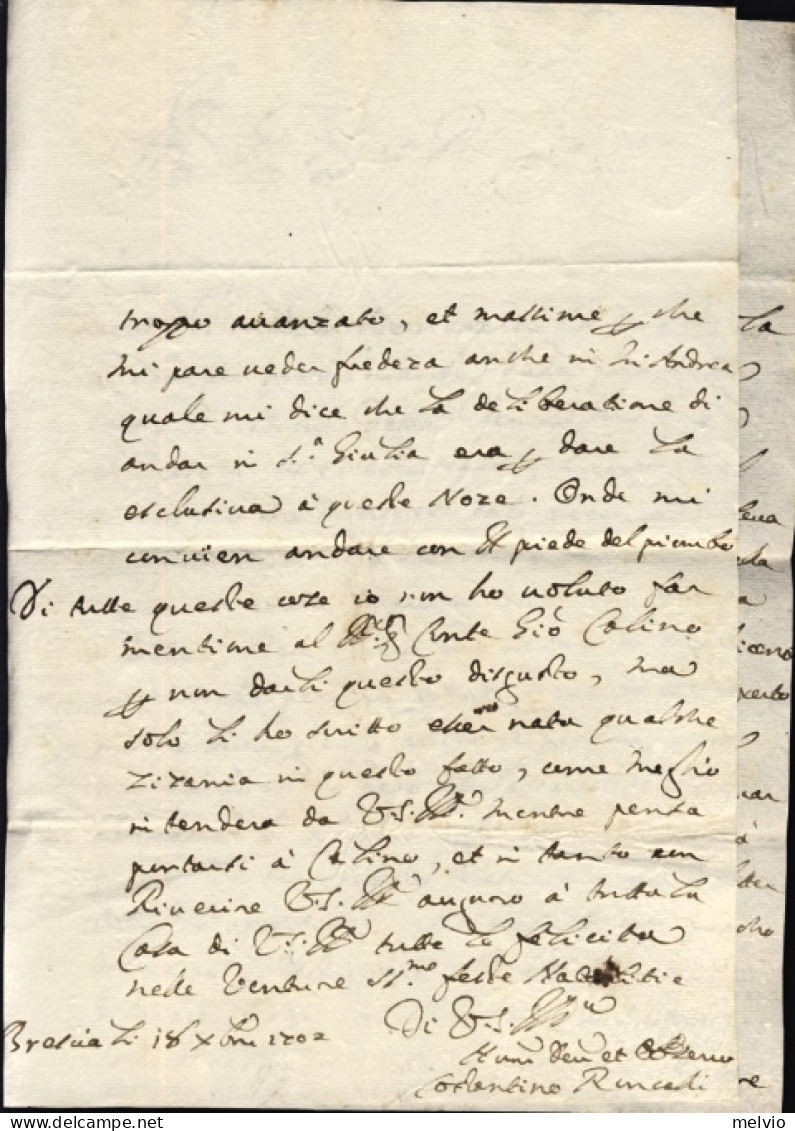 troppo auanzato, et massime che
mi pare ueder fredeza anche in Andrea
quale mi dice che la deliberatione di
andar in S.ª Giulia era dare la
esclusiua à queste Noze. Onde mi
conuien andare con il piede del piombo
Di tutte queste cose io non ho uoluto far
mentione al Conte Giò Calino
non darli questo disgusto, ma
solo li ho scritto esser nata qualche
zizania in questo fatto, come meglio
intenderà da V.S. Ill.ª mentre pensa
portarsi à Calino, et in tanto con
Riuerire V.S. Ill.ª auguro à tutta la
Casa di V.S. Ill.ª tutte le felicità
nelle Venture SS.me feste Natalitie
Brescia li 18 Xbre 1702
Di V.S. Ill.ª
Hum Deu et
Costantino
la
à
re
melvio